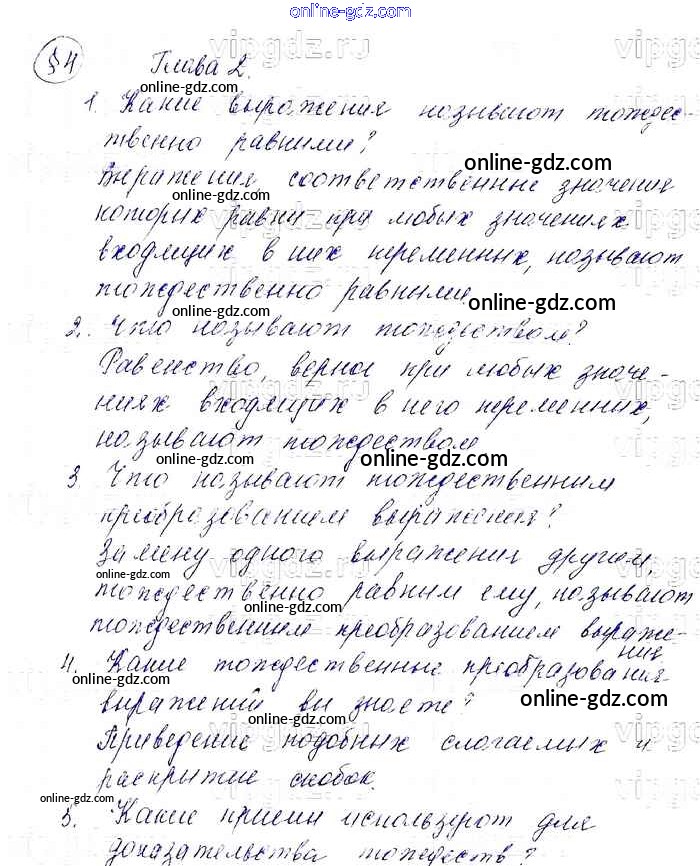 online-gdz.com
§4 Глава 2.
online-gdz.com
1. Какие выражения называют тождес-
твенно равными?
online-gdz.com
online-gdz.com
Выражения, соответственные значения
которых равны при любых значениях
online-gdz.com
входящих в них переменных, называют
тождественно равными.
online-gdz.com
online-gdz.com
2. Что называют тождеством?
Равенство, верное при любых значе-
online-gdz.com
ниях входящих в него переменных,
называют тождеством
online-gdz.com
online-gdz.com
online-gdz.com
3. Что называют тождественным
преобразованием выражения?
Замену одного выражения другим,
online-gdz.com
тождественно равным ему, называют
online-gdz.com
тождественным преобразованием выраже-
ния
4. Какие тождественные преобразования
online-gdz.com
выражений вы знаете?
online-gdz.com
online-gdz.com
Приведение подобных слагаемых и
раскрытие скобок.
online-gdz.com
5. Какие приемы используют для
доказательства тождеств?